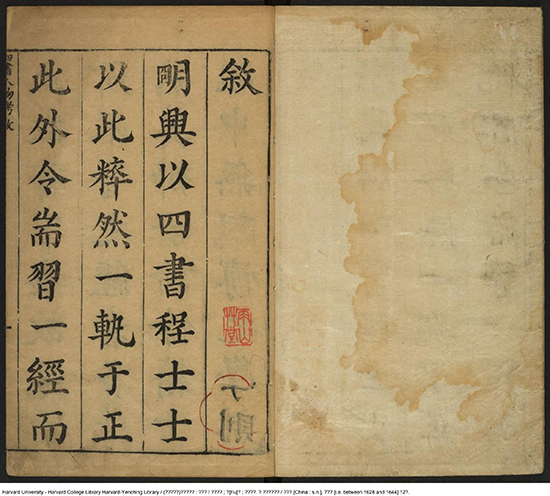 敘
雨山草堂
明興以四書程士士
以此粹然一軌于正
此外令耑習一經而
四書人物考敘
Harvard University - Harvard College Library Harvard-Yenching Library / (?????)????? : ??? / ???? ; ?[Fu]? ; ????. ? ?????? / ??? [China : s.n.], ??? [i.e. between 1628 and 1644] 12?.